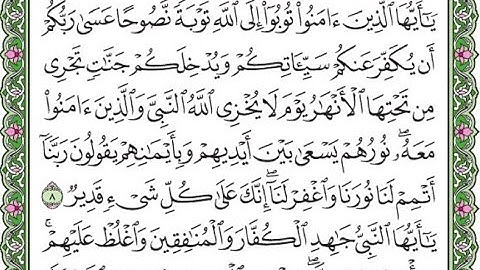 يَـٰٓأَيُّهَا ٱلَّذِينَ ءَامَنُوا۟ تُوبُوٓا۟ إِلَى ٱللَّهِ تَوْبَةً نَّصُوحًا عَسَىٰ رَبُّكُمْ
أَن يُكَفِّرَ عَنكُمْ سَيِّـَٔاتِكُمْ وَيُدْخِلَكُمْ جَنَّـٰتٍ تَجْرِى
مِن تَحْتِهَا ٱلْأَنْهَـٰرُ يَوْمَ لَا يُخْزِى ٱللَّهُ ٱلنَّبِىَّ وَٱلَّذِينَ ءَامَنُوا۟
مَعَهُۥ ۖ نُورُهُمْ يَسْعَىٰ بَيْنَ أَيْدِيهِمْ وَبِأَيْمَـٰنِهِمْ يَقُولُونَ رَبَّنَآ
أَتْمِمْ لَنَا نُورَنَا وَٱغْفِرْ لَنَآ ۖ إِنَّكَ عَلَىٰ كُلِّ شَىْءٍ قَدِيرٌ ٨
يَـٰٓأَيُّهَا ٱلنَّبِىُّ جَـٰهِدِ ٱلْكُفَّارَ وَٱلْمُنَـٰفِقِينَ وَٱغْلُظْ عَلَيْهِمْ ۚ